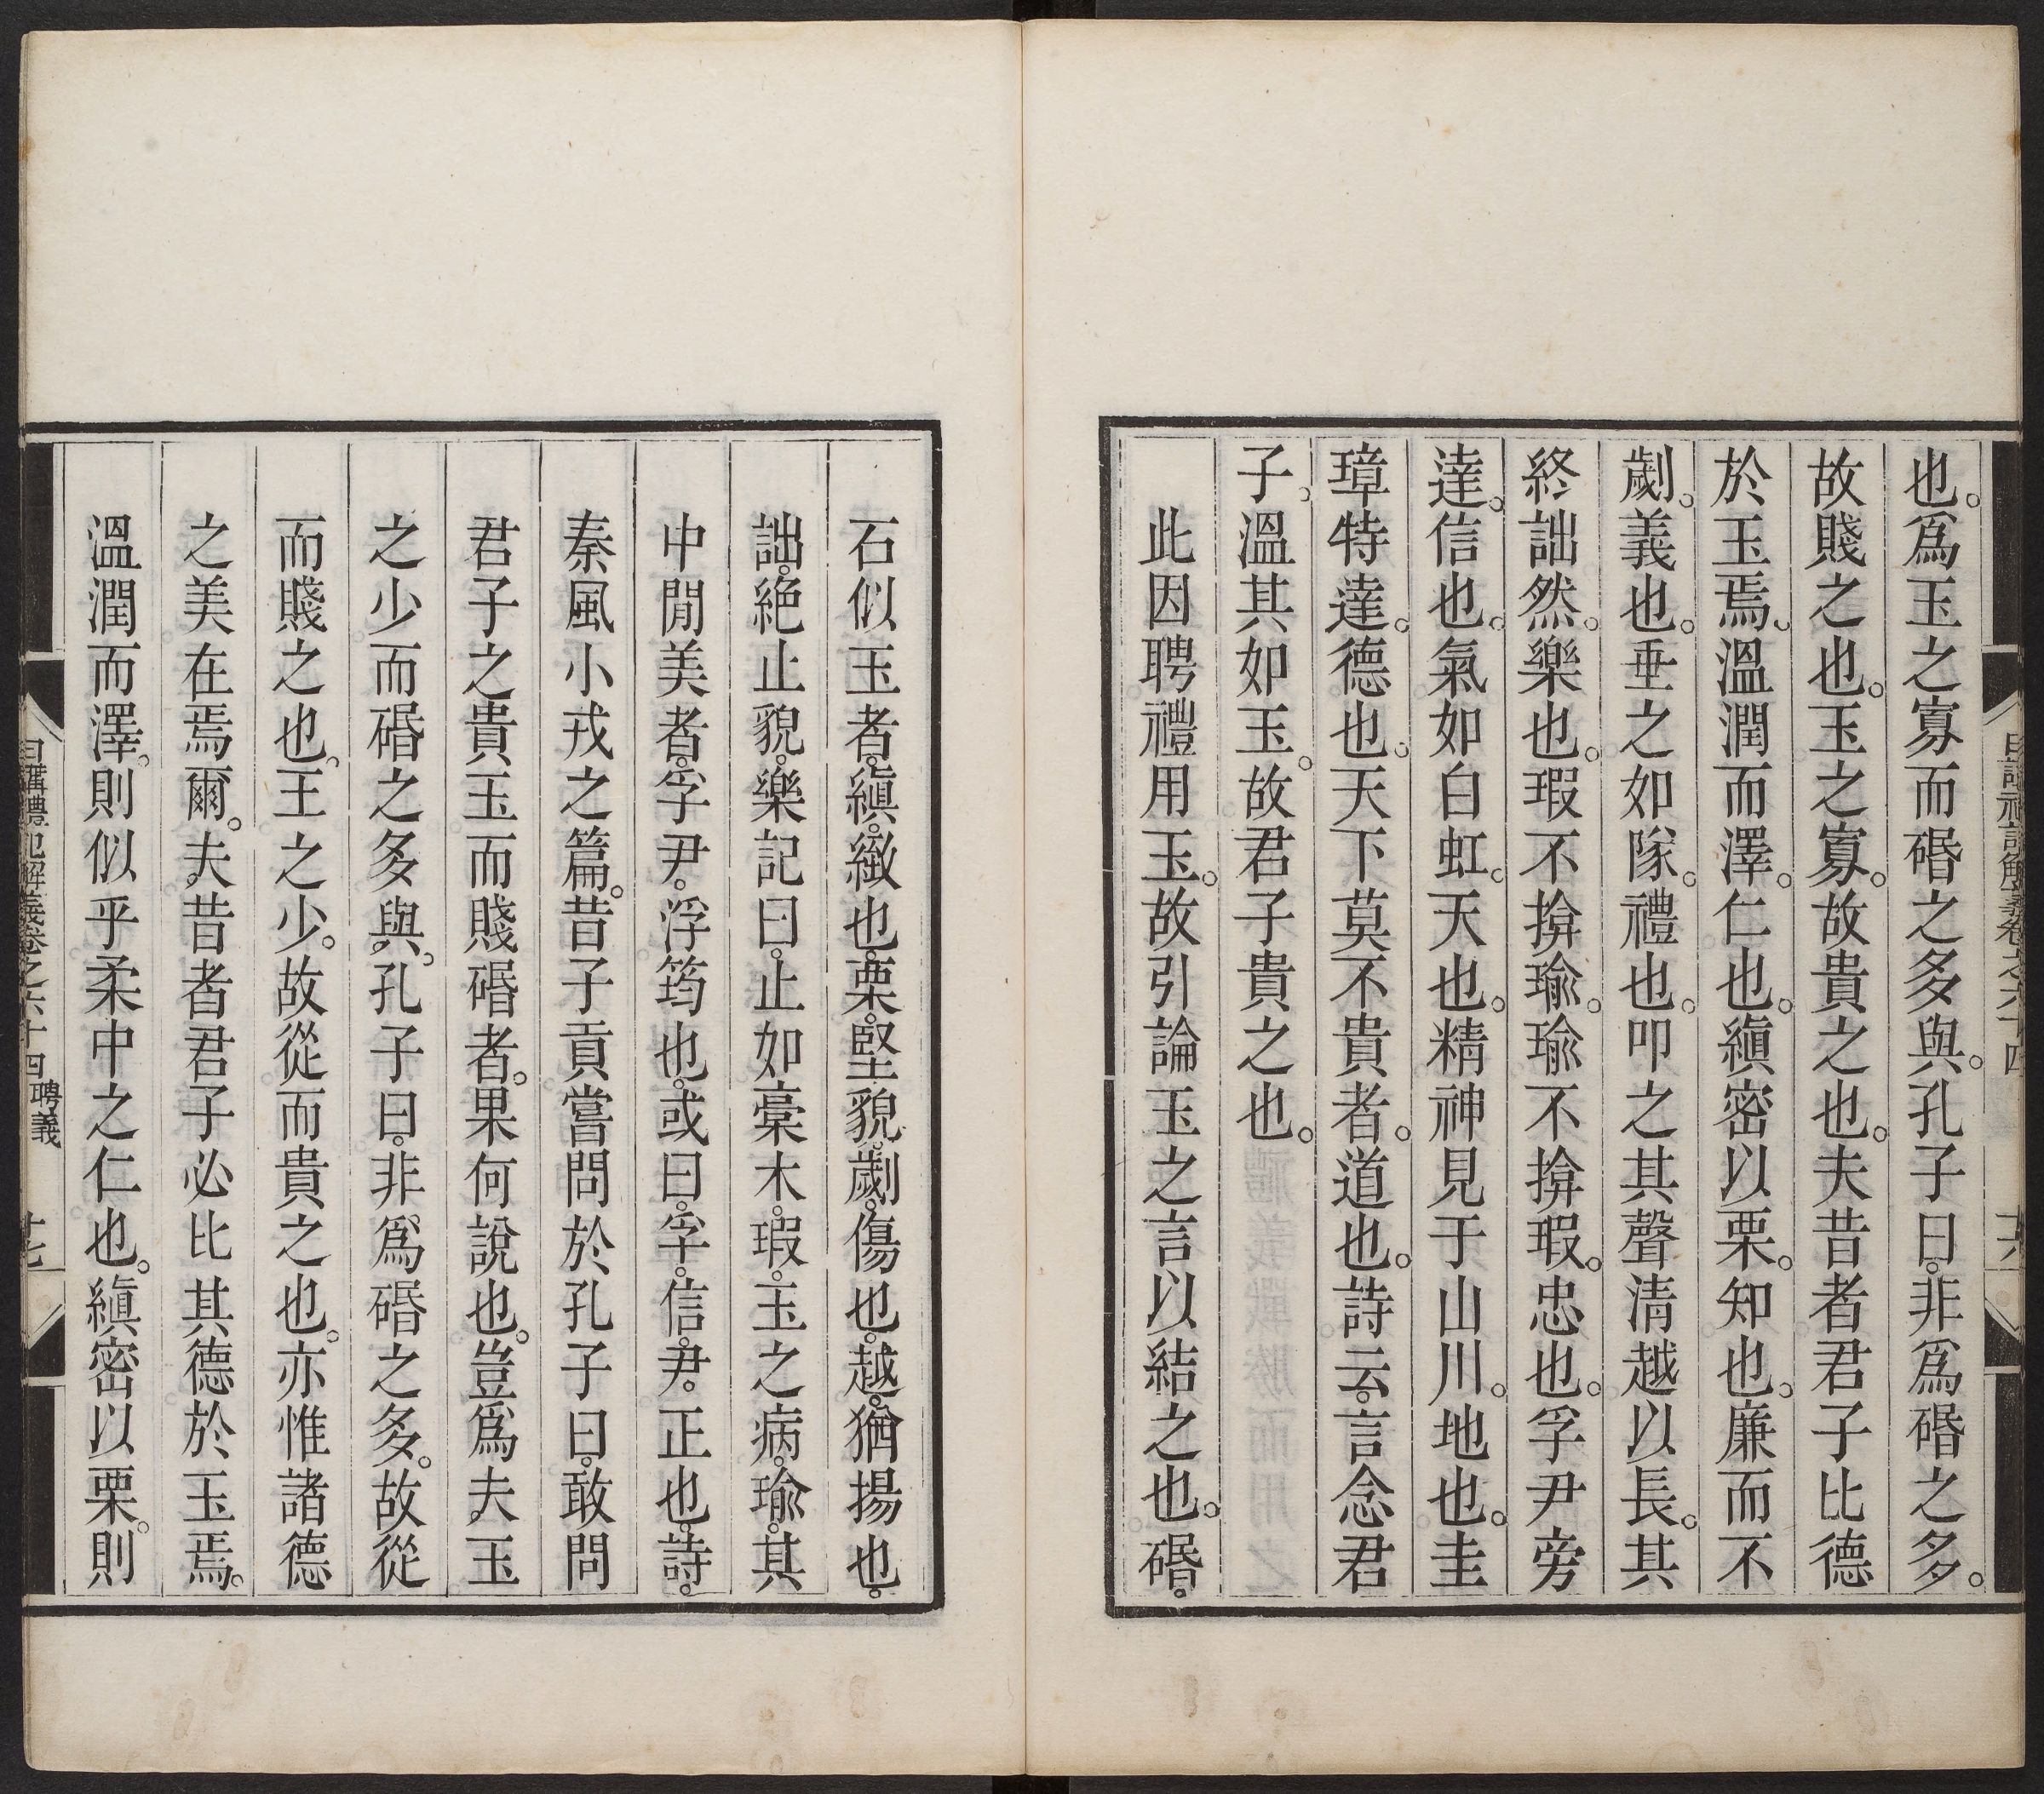 也。爲玉之寡而碈之多與。孔子曰。非爲碈之多。
故賤之也。玉之寡。故貴之也。夫昔者君子比德
於玉焉。溫潤而澤。仁也。縝密以栗。知也。廉而不
劌。義也。垂之如隊。禮也。叩之其聲清越以長。其
終詘然。樂也。瑕不揜瑜。瑜不揜瑕。忠也。孚尹旁
達。信也。氣如白虹。天也。精神見于山川。地也。圭
璋特達。德也。天下莫不貴者。道也。詩云。言念君
子。溫其如玉。故君子貴之也。
此因聘禮用玉。故引論玉之言以結之也。碈。
石似玉者。縝。緻也。栗。堅貌。劌。傷也。越。猶揚也。
詘。絕止貌。樂記曰。止如槀木。瑕。玉之病。瑜。其
中閒美者。孚尹。浮筠也。或曰。孚。信。尹。正也。詩。
秦風小戎之篇。昔子貢嘗問於孔子曰。敢問
君子之貴玉而賤碈者。果何說也。豈爲夫玉
之少而碈之多與。孔子曰。非爲碈之多。故從
而賤之也。王之少。故從而貴之也。亦惟諸德
之美在焉爾。夫昔者君子必比其德於玉焉。
溫潤而澤。則似乎柔中之仁也。縝密以栗。則
日講禮記解義卷之六十四 聘義 廿七